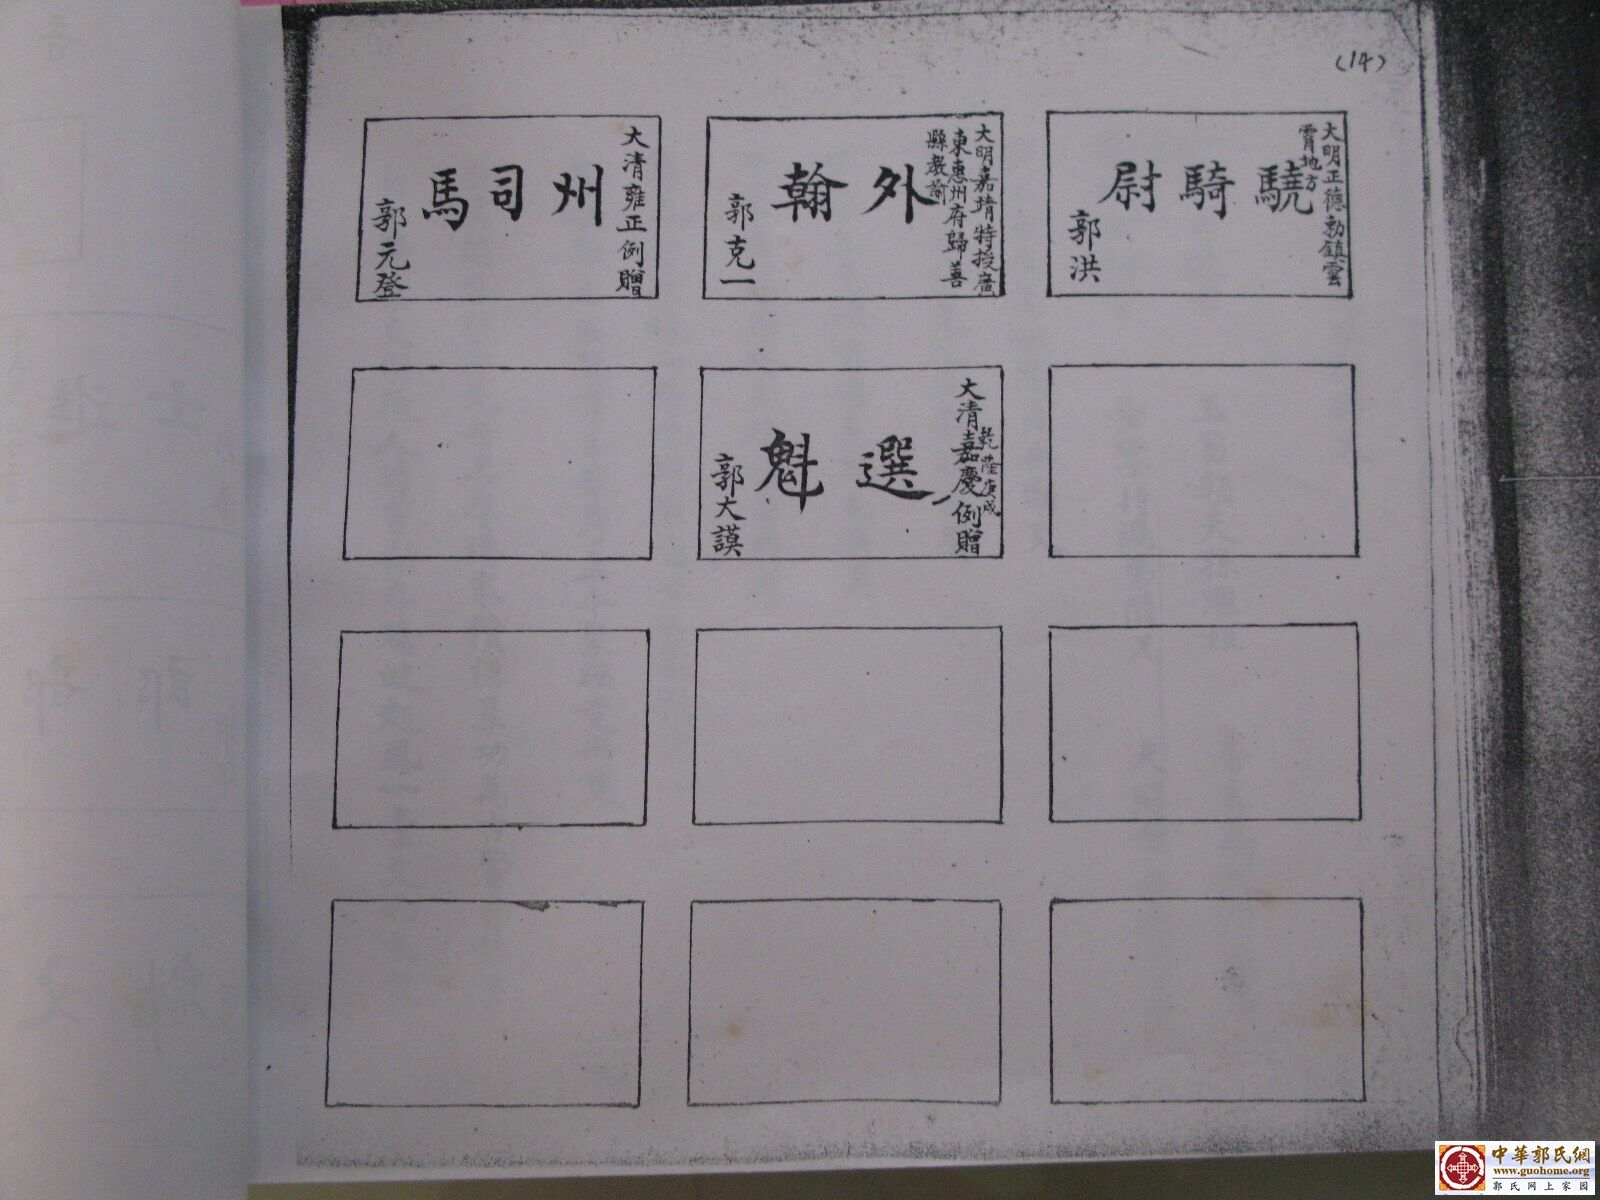 (14)
大明正德勅鎮雲
霄地方
驍騎尉
郭洪
大明嘉靖特授廣
東惠州府歸善
縣教諭
外翰
郭克一
大清雍正例贈
州司馬
郭元登
乾隆庚戌
大清嘉慶例贈
選魁
郭大謨
中華郭氏網
www.guohome.org
郭氏网上家园